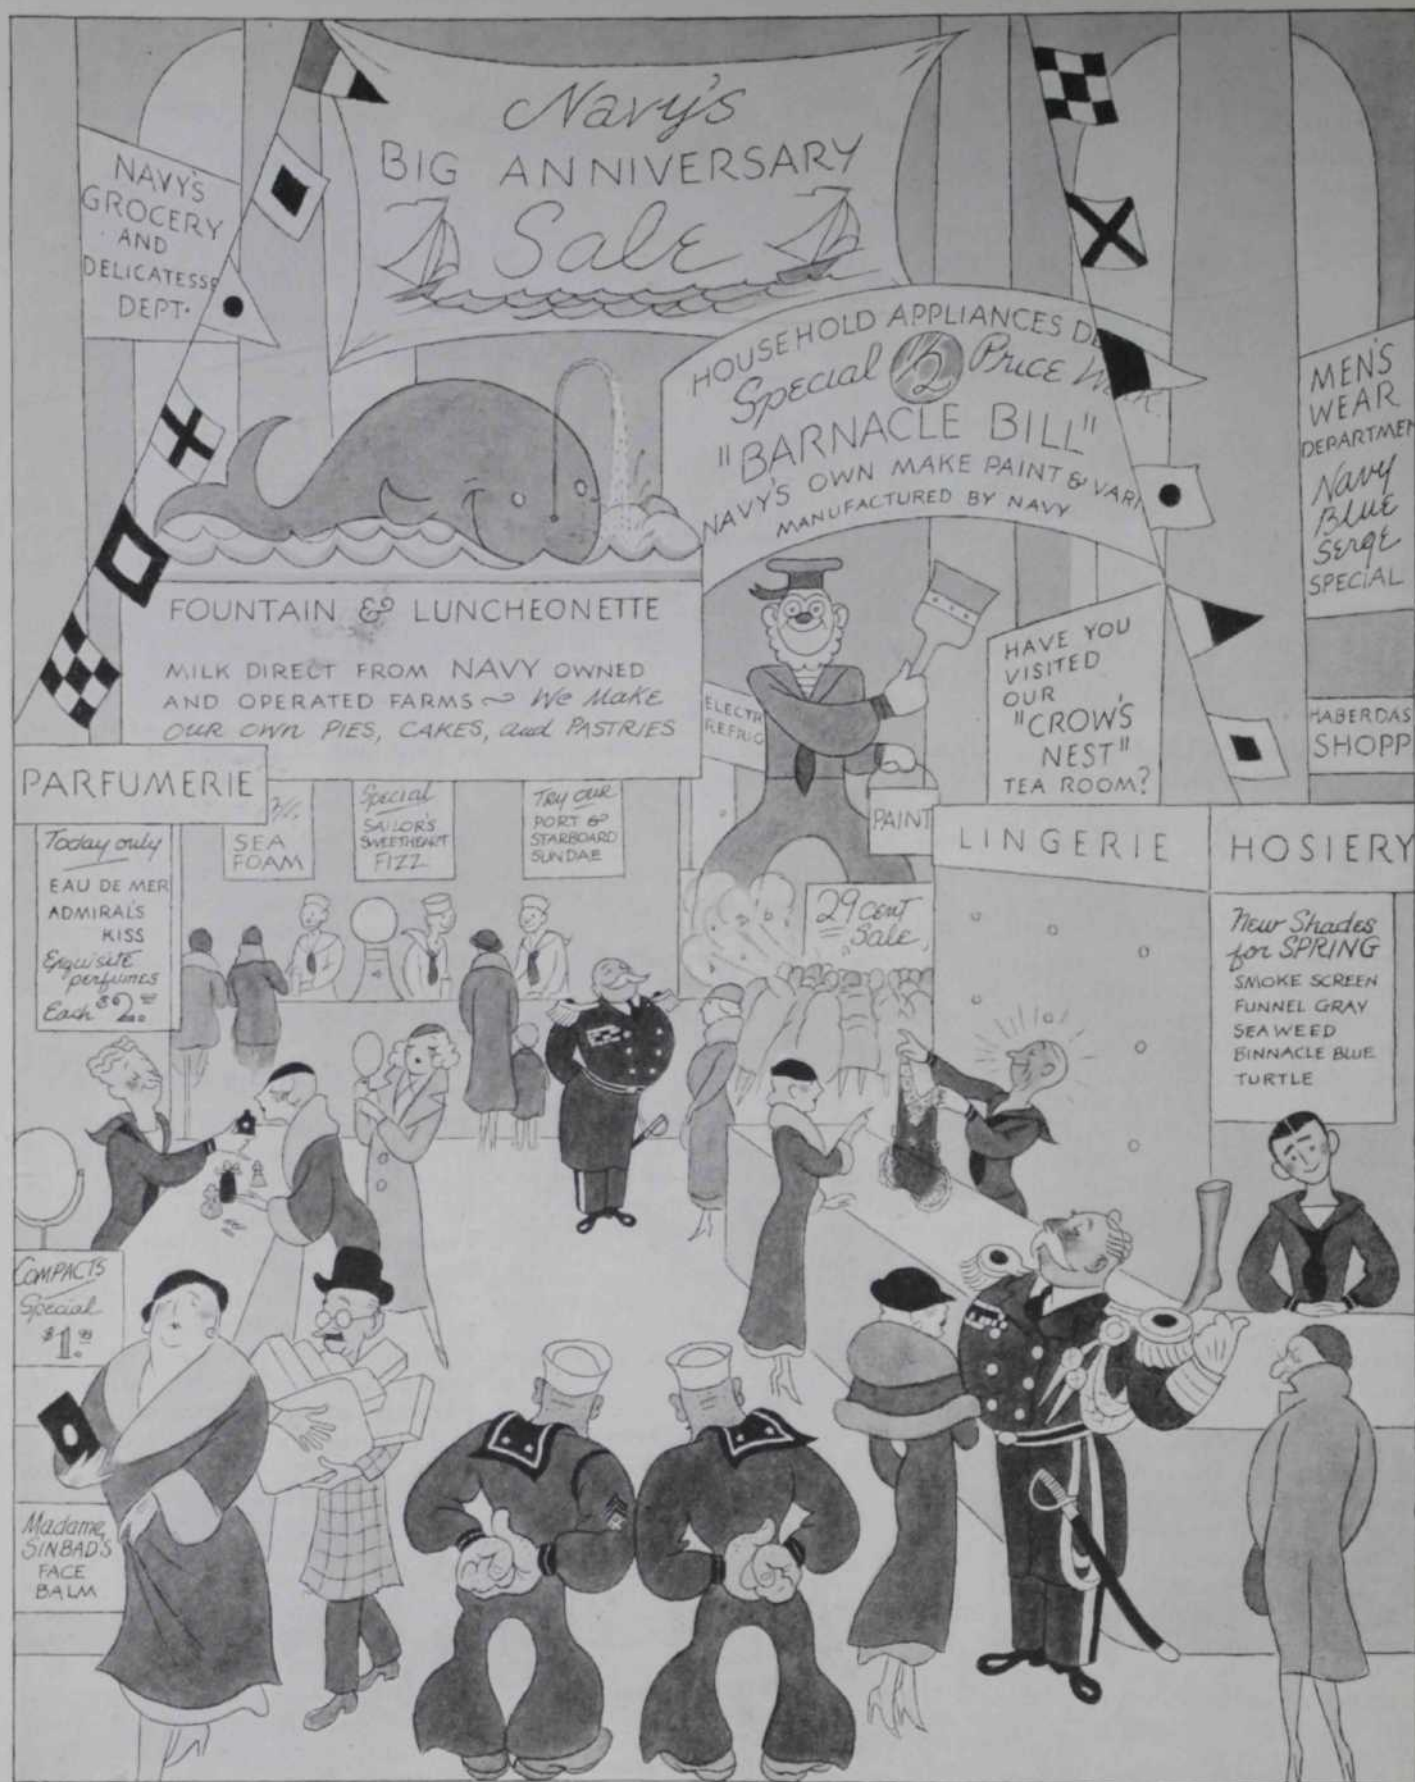 Navy's
BIG ANNIVERSARY
Sale
NAVY'S
GROCERY
AND
DELICATESSE
DEPT.
HOUSEHOLD APPLIANCES DE
Special 1/2 Price
"BARNACLE BILL"
NAVY'S OWN MAKE PAINT & VARI
MANUFACTURED BY NAVY
MEN'S
WEAR
DEPARTMEN
Navy
Blue
Serge
SPECIAL
FOUNTAIN & LUNCHEONETTE
MILK DIRECT FROM NAVY OWNED
AND OPERATED FARMS ~ We Make
OUR OWN PIES, CAKES, and PASTRIES
ELECTR
REFRIG
HAVE YOU
VISITED
OUR
"CROW'S
NEST"
TEA ROOM?
HABERDAS
SHOPP
PARFUMERIE
PAINT
LINGERIE
HOSIERY
Today only
EAU DE MER
ADMIRAL'S
KISS
Exquisite
perfumes
Each $2.00
SEA
FOAM
Special
SAILOR'S
SWEETHEART
FIZZ
Try our
PORT &
STARBOARD
SUNDAE
29 cent
Sale
New Shades
for SPRING
SMOKE SCREEN
FUNNEL GRAY
SEA WEED
BINNACLE BLUE
TURTLE
COMPACTS
Special
$1.00
Madame
SINBAD'S
FACE
BALM